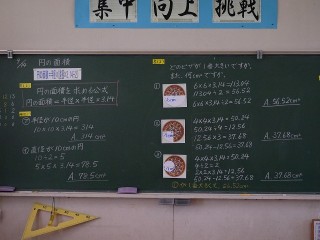 集中 向上 挑戦
円の面積
円の面積を求める公式
円の面積＝半径×半径×3.14
半径が10cmの円
10×10×3.14＝314
A. 314cm²
直径が10cmの円
10÷2＝5
5×5×3.14＝78.5
A. 78.5cm²
どのピザが1番大きいですか。
また、何cm²ですか。
①
6×6×3.14＝113.04
113.04÷2＝56.52
6×6×3.14÷2＝56.52
A. 56.52cm²
②
4×4×3.14＝50.24
50.24÷4＝12.56
12.56×3＝37.68
50.24-12.56＝37.68
A. 37.68cm²
③
4×4×3.14＝50.24
4÷2＝2
2×2×3.14＝12.56
50.24-12.56＝37.68
A. 37.68cm²